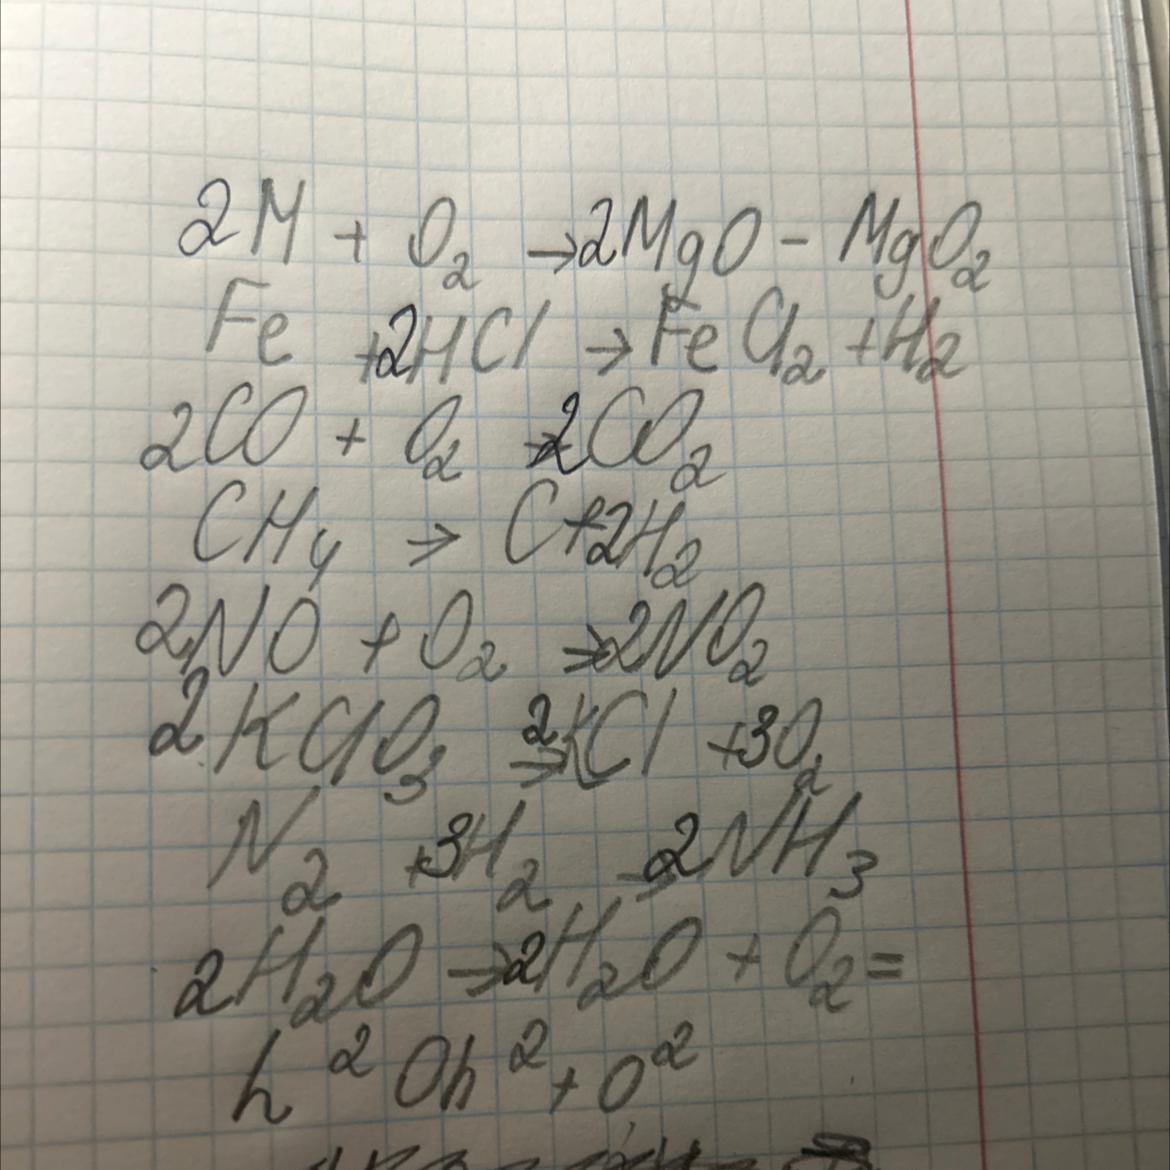 2M + O₂ → 2MgO - MgO₂
Fe + 2HCl → FeCl₂ + H₂
2CO + O₂ → 2CO₂
CH₄ → C + 2H₂
2NO + O₂ → 2NO₂
2KClO₃ → 2KCl + 3O₂
N₂ + 3H₂ → 2NH₃
2H₂O → 2H₂O + O₂ =
h² Oh² + O²